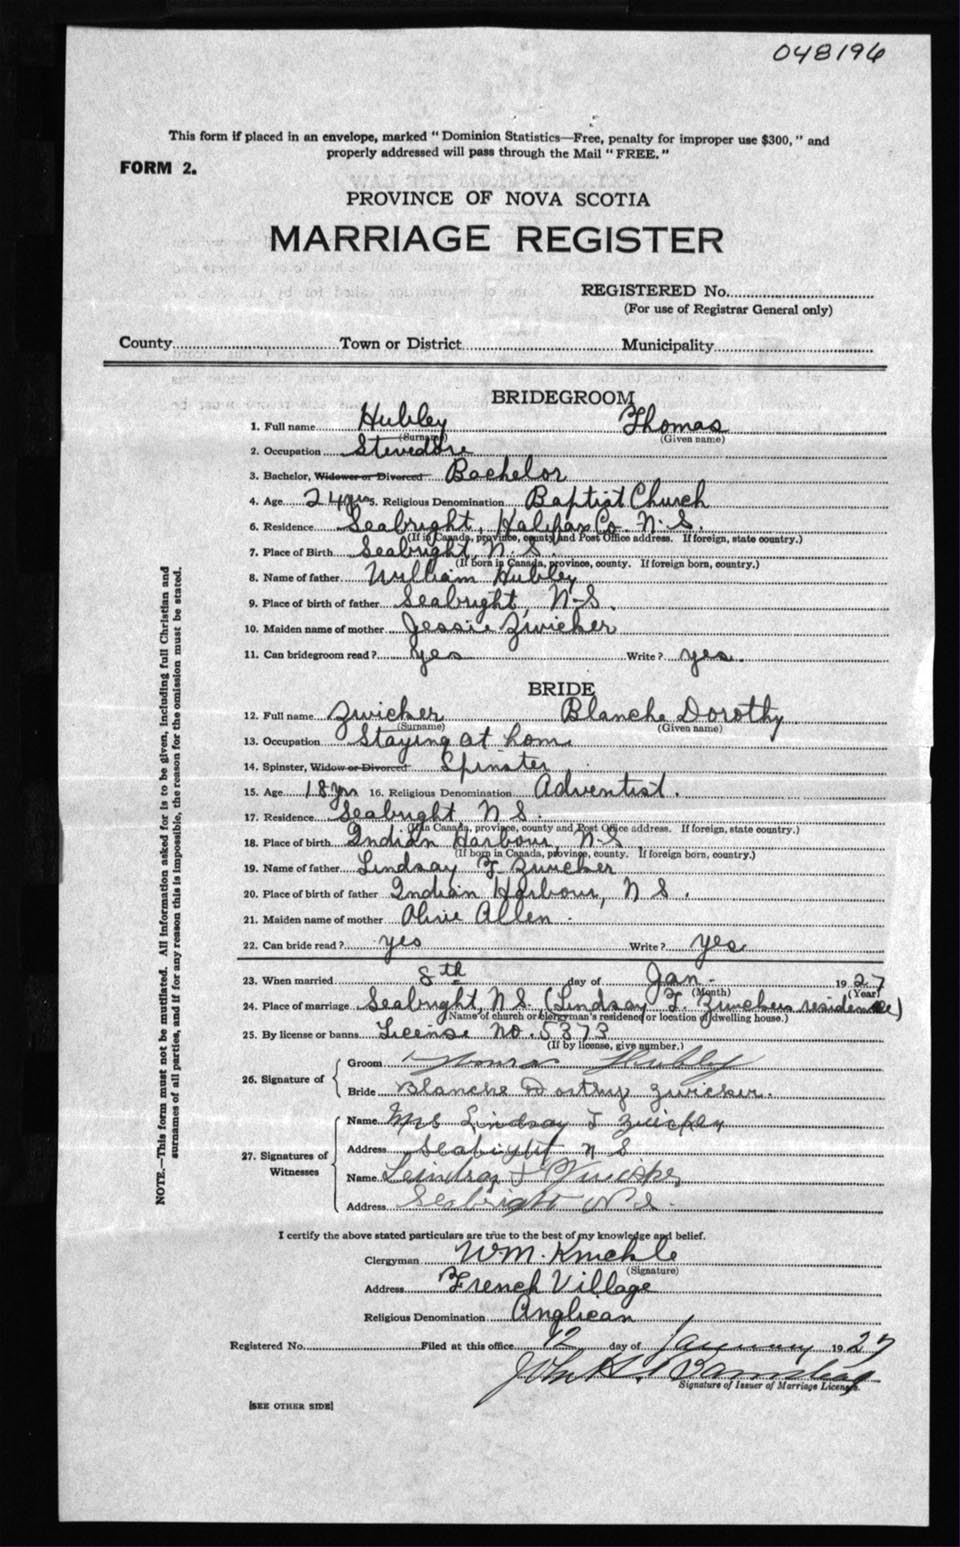 048196
This form if placed in an envelope, marked "Dominion Statistics—Free, penalty for improper use $300," and
properly addressed will pass through the Mail "FREE."
FORM 2.
PROVINCE OF NOVA SCOTIA
MARRIAGE REGISTER
REGISTERED No.
(For use of Registrar General only)
County Town or District Municipality
BRIDEGROOM
1. Full name Hubley Thomas
(Surname) (Given name)
2. Occupation Stevedore
3. Bachelor, Widower or Divorced Bachelor
4. Age 24 yrs 5. Religious Denomination Baptist Church
6. Residence Seabright, Halifax Co. N.S.
(If in Canada, province, county and Post Office address. If foreign, state country.)
7. Place of Birth Seabright, N.S.
(If born in Canada, province, county. If foreign born, country.)
8. Name of father William Hubley
9. Place of birth of father Seabright, N-S.
10. Maiden name of mother Jessie Zwicker
11. Can bridegroom read? yes Write? yes.
BRIDE
12. Full name Zwicker Blanche Dorothy
(Surname) (Given name)
13. Occupation Staying at home
14. Spinster, Widow or Divorced Spinster
15. Age 18 yrs 16. Religious Denomination Adventist.
17. Residence Seabright N S.
(If in Canada, province, county and Post Office address. If foreign, state country.)
18. Place of birth Indian Harbour, N-S
(If born in Canada, province, county. If foreign born, country.)
19. Name of father Lindsay F Zwicker
20. Place of birth of father Indian Harbour, N S.
21. Maiden name of mother Allen.
22. Can bride read? yes Write? yes
23. When married 8th day of Jan. 1927
(Month) (Year)
24. Place of marriage Seabright, N.S. (Lindsay F. Zwickers residence)
(Name of church or clergyman's residence or location of dwelling house.)
25. By license or banns License No. 5373
(If by license, give number.)
26. Signature of Groom Thomas Hubley
Bride Blanche Dorthy Zwicker.
27. Signatures of Witnesses
Name Mrs Lindsay F Zwicker
Address Seabright N S
Name Lindsay F Zwicker
Address Seabright N S.
I certify the above stated particulars are true to the best of my knowledge and belief.
Clergyman Wm. Knickle
(Signature)
Address French Village
Religious Denomination Anglican
Registered No. Filed at this office 12 day of January 1927
John H.
Signature of Issuer of Marriage Licenses.
[SEE OTHER SIDE]
NOTE.—This form must not be mutilated. All information asked for is to be given, including full Christian and
surnames of all parties, and if for any reason this is impossible, the reason for the omission must be stated.